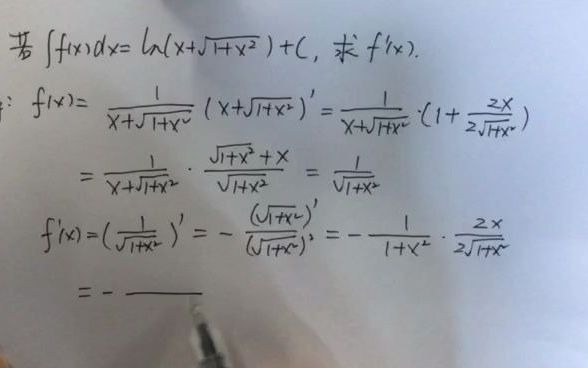 若 ∫f(x)dx = ln(x+√(1+x²))+C, 求 f'(x).
: f(x) = 1/(x+√(1+x²)) (x+√(1+x²))' = 1/(x+√(1+x²)) · (1 + 2x/(2√(1+x²)))
= 1/(x+√(1+x²)) · (√(1+x²)+x)/√(1+x²) = 1/√(1+x²)
f'(x) = (1/√(1+x²))' = - (√(1+x²))'/(√(1+x²))² = - 1/(1+x²) · 2x/(2√(1+x²))
= -